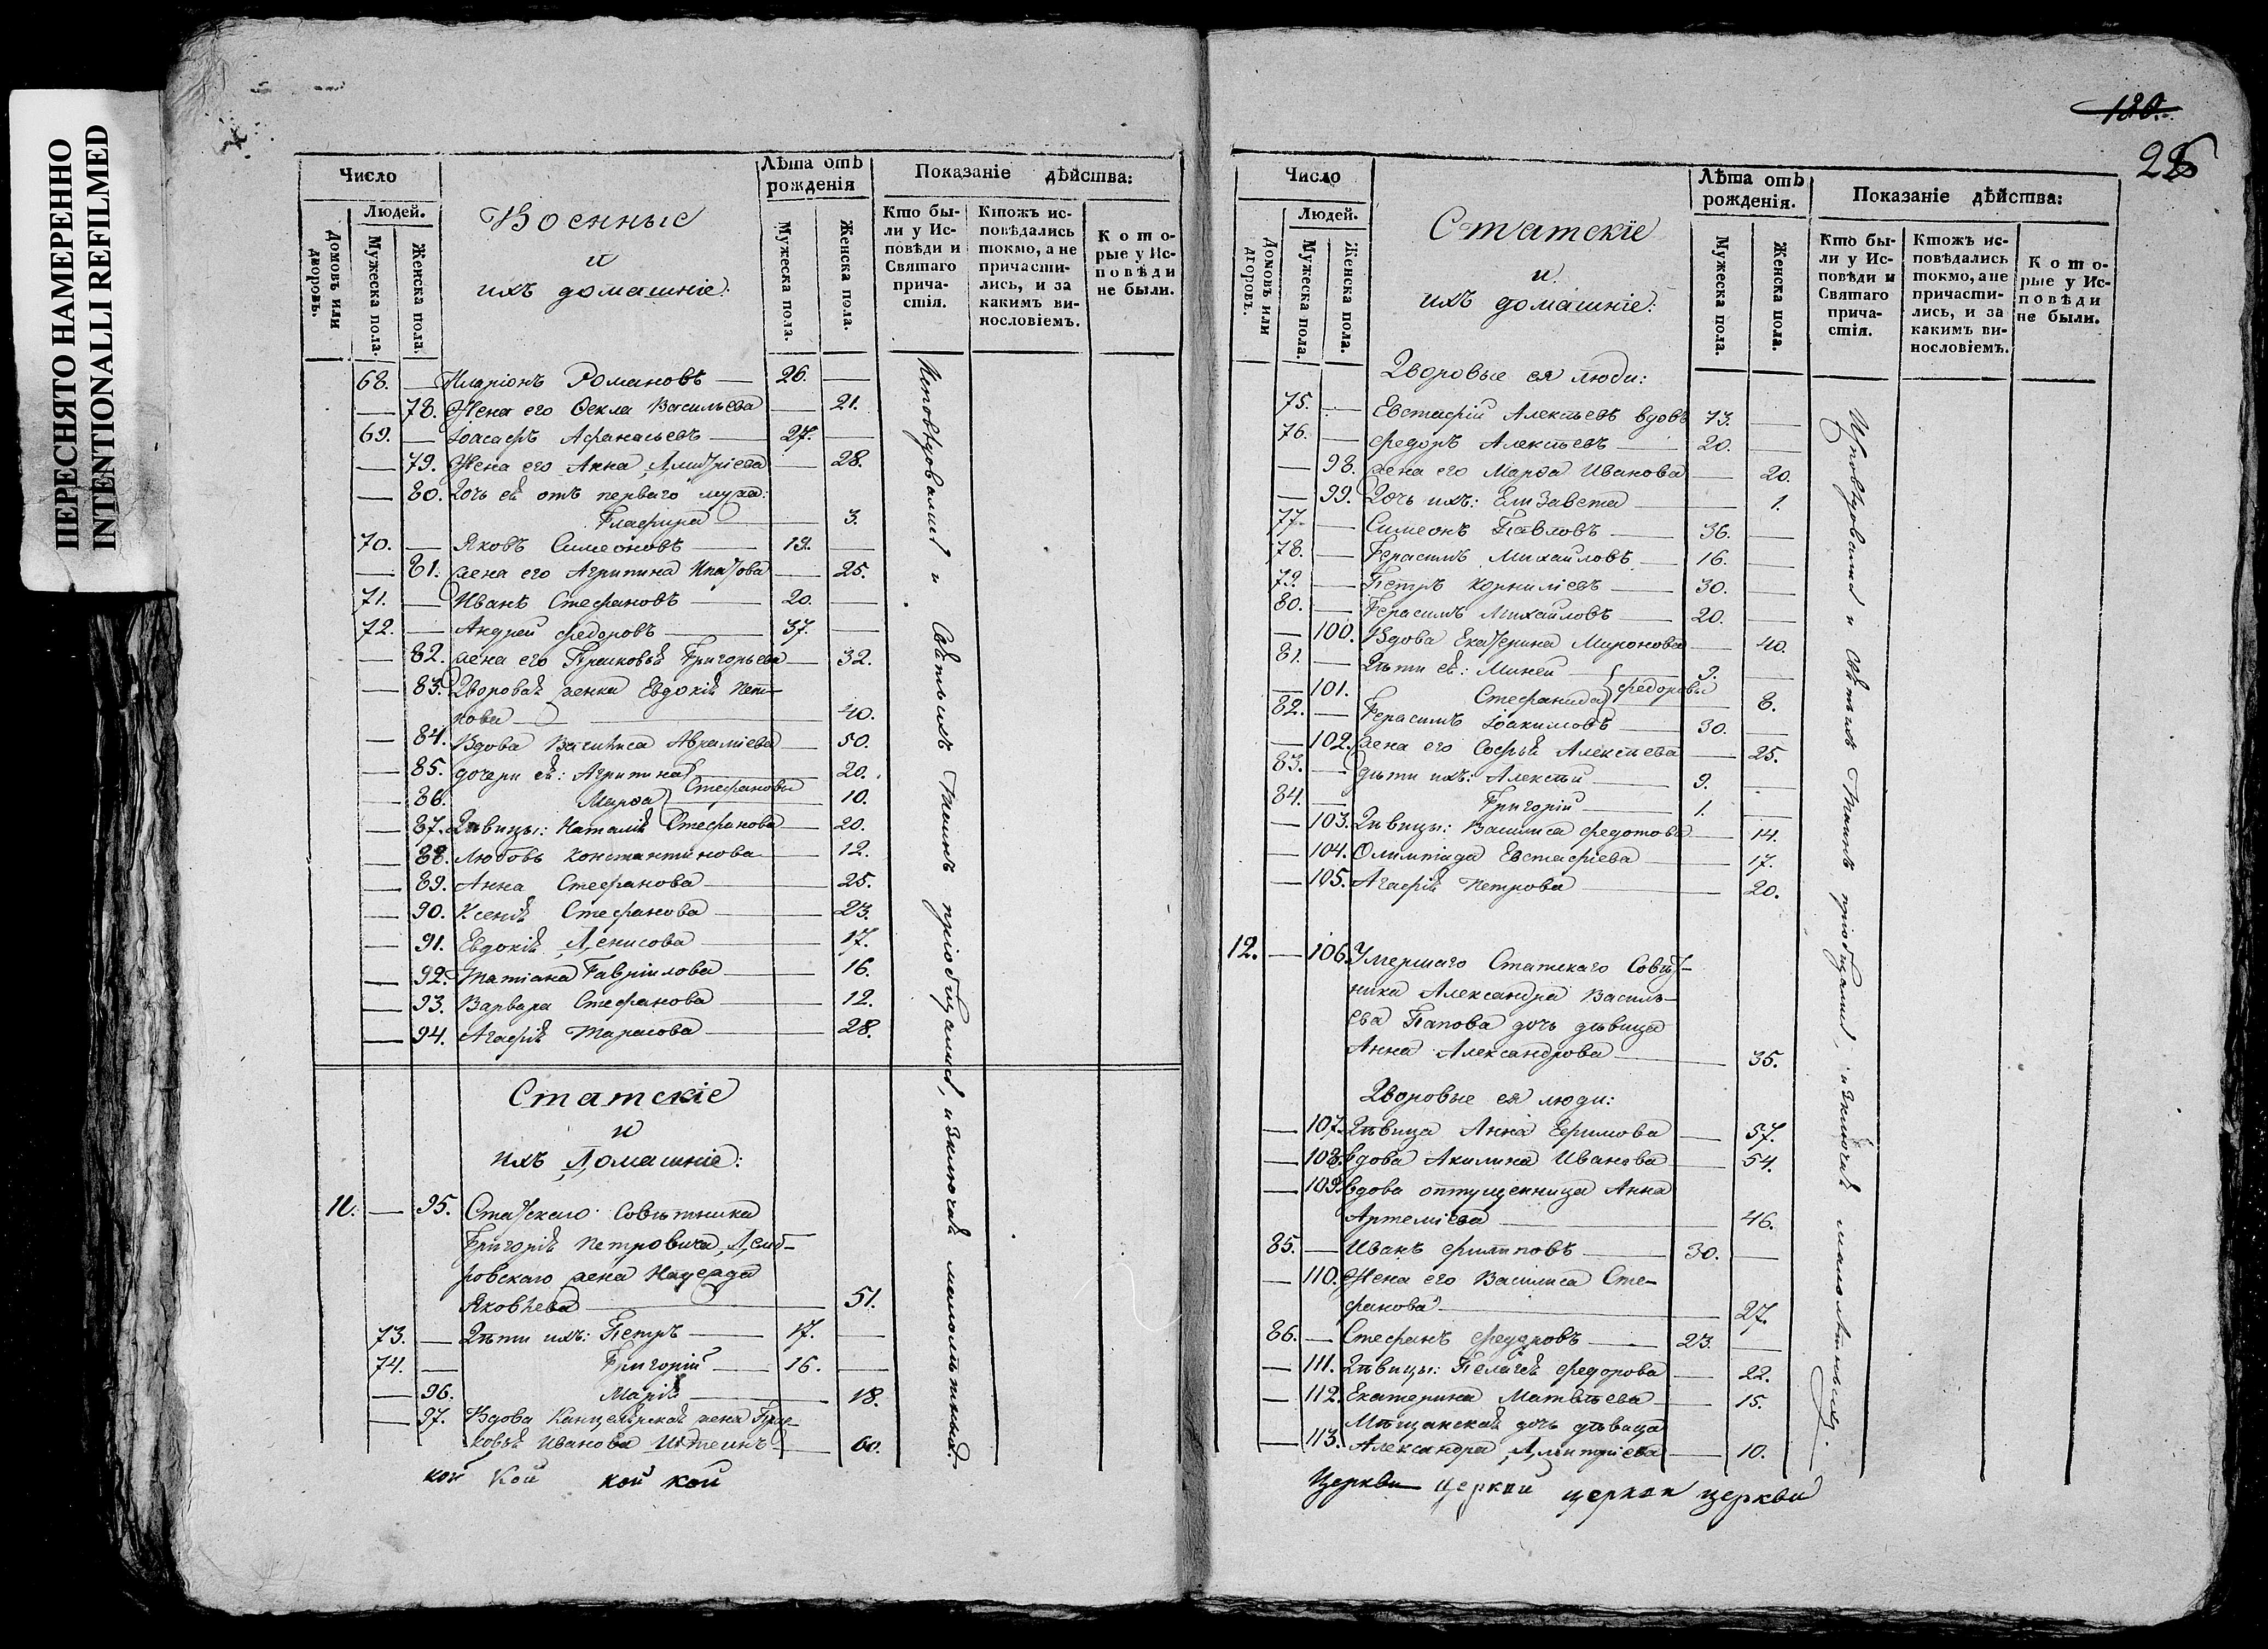 ПЕРЕСНЯТО НАМЕРЕННО
INTENTIONALLI REFILMED
Число
Людей.
Домовъ или дворовъ.
Мужеска пола.
Женска пола.
Военные
и
ихъ домашніе:
Лѣта отъ рожденія
Мужеска пола.
Женска пола.
Показаніе дѣйства:
Кто бы-
ли у Ис-
повѣди и
Святаго
прича-
стія.
Ктожъ ис-
повѣдались
токмо, а не
причасти-
лись, и за
какимъ ви-
нословіемъ.
Кото-
рые у Ис-
повѣди
не были.
68. — Иларіонъ Романовъ — 26. —
— 78. Жена его Ѳекла Васильева — 21.
69. — Іоасафъ Афанасьевъ — 27. —
— 79. Жена его Анна Дмитріева — 28.
— 80. Дочь ея отъ перваго мужа:
Глафира — 3.
70. — Яковъ Симеоновъ — 19. —
— 81. жена его Агрипина Ипатова — 25.
71. — Иванъ Стефановъ — 20. —
72. — Андрей Федоровъ — 37. —
— 82. жена его Прасковья Григорьева — 32.
— 83. Дворовая женка Евдокія Пет-
рова — 40.
— 84. Вдова Василиса Авраміева — 50.
— 85. дочери ея: Агрипина — 20.
Стефановы
— 86. Марѳа — 10.
— 87. Дѣвицы: Наталія Стефанова — 20.
— 88. Любовь Константинова — 12.
— 89. Анна Стефанова — 25.
— 90. Ксенія Стефанова — 23.
— 91. Евдокія Денисова — 17.
— 92. Татіана Гавріилова — 16.
— 93. Варвара Стефанова — 12.
— 94. Агафія Тарасова — 28.
Статскіе
и
ихъ Домашніе:
11. — 95. Статскаго Совѣтника
Григорія Петровича
жена Надежда
Яковлева — 51.
73. — Дѣти ихъ: Петръ — 17. —
74. — Григорій — 16. —
— 96. Марія — 18.
— 97. Вдова Канцелярская жена Прас-
ковья Иванова — 60.
Исповѣдовались и Святыхъ Таинъ пріобщались, изключая малолѣтныхъ.
кой кой кой кой
120.
Число
Людей.
Домовъ или дворовъ.
Мужеска пола.
Женска пола.
Статскіе
и
ихъ домашніе:
Лѣта отъ рожденія.
Мужеска пола.
Женска пола.
Показаніе дѣйства:
Кто бы-
ли у Ис-
повѣди и
Святаго
прича-
стія.
Ктожъ ис-
повѣдались
токмо, а не
причасти-
лись, и за
какимъ ви-
нословіемъ.
Кото-
рые у Ис-
повѣди
не были.
Дворовые ея люди:
75. — Евстафій Алексѣевъ вдовъ 73. —
76. — Федоръ Алексѣевъ — 20. —
— 98. жена его Марѳа Иванова — 20.
— 99. Дочь ихъ: Елизавета — 1.
77. — Симеонъ Павловъ — 36. —
78. — Герасимъ Михайловъ — 16. —
79. — Петръ Корниліевъ — 30. —
80. — Герасимъ Михайловъ — 20. —
— 100. Вдова Екатерина Миронова — 40.
81. — Дѣти ея: Миней — 9. —
Федоровы
— 101. Стефанида — 8.
82. — Герасимъ Іоакимовъ — 30. —
— 102. жена его Софья Алексѣева — 25.
83. — дѣти ихъ: Алексѣй — 9. —
84. — Григорій — 1. —
— 103. Дѣвицы: Василиса Федотова — 14.
— 104. Олимпіада Евстафіева — 17.
— 105. Агафія Петрова — 20.
12. — 106. Умершаго Статскаго Совѣт-
ника Александра Василь-
ева Папова дочь дѣвица
Анна Александрова — 35.
Дворовые ея люди:
— 107. Дѣвица Анна Ефимова — 57.
— 108. Вдова Акилина Иванова — 54.
— 109. Вдова отпущенница Анна
Артеміева — 46.
85. — Иванъ Филиповъ — 30. —
— 110. Жена его Василиса Сте-
фанова — 27.
86. — Стефанъ Федоровъ — 23. —
— 111. Дѣвицы: Пелагія Федорова — 22.
— 112. Екатерина Матвѣева — 15.
Мѣщанская дочь дѣвица
— 113. Александра Дмитріева — 10.
Исповѣдовались и Святыхъ Таинъ пріобщались, изключая малолѣтныхъ.
Церкви Церкви церкви церкви